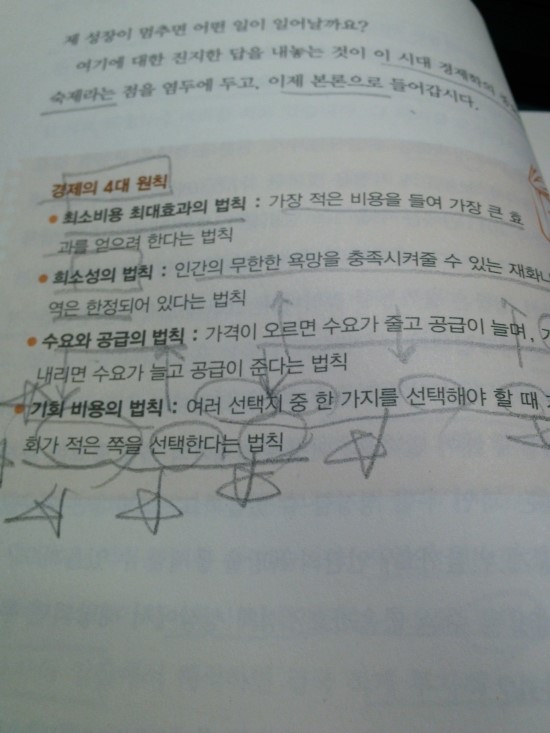 제 성장이 멈추면 어떤 일이 일어날까요?
여기에 대한 진지한 답을 내놓는 것이 이 시대 경제학의
숙제라는 점을 염두에 두고, 이제 본론으로 들어갑시다.
경제의 4대 원칙
• 최소비용 최대효과의 법칙 : 가장 적은 비용을 들여 가장 큰 효
과를 얻으려 한다는 법칙
• 희소성의 법칙 : 인간의 무한한 욕망을 충족시켜줄 수 있는 재화나
역은 한정되어 있다는 법칙
• 수요와 공급의 법칙 : 가격이 오르면 수요가 줄고 공급이 늘며,
내리면 수요가 늘고 공급이 준다는 법칙
• 기회 비용의 법칙 : 여러 선택지 중 한 가지를 선택해야 할 때
회가 적은 쪽을 선택한다는 법칙